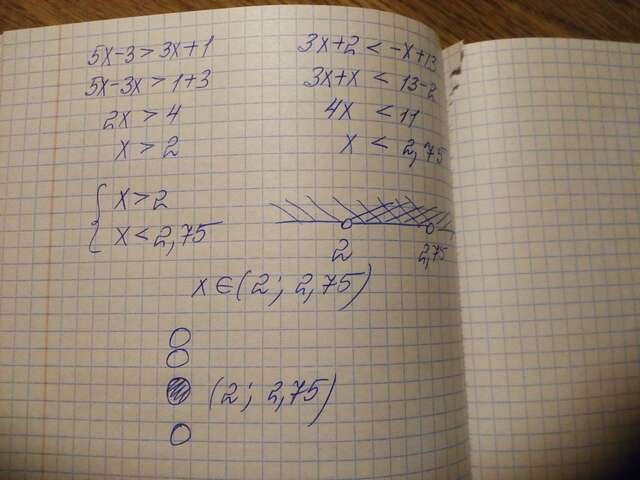 5x-3>3x+1
5x-3x>1+3
2x>4
x>2
3x+2<-x+13
3x+x<13-2
4x<11
x<2,75
{ x>2
x<2,75
2 2,75
x∈(2; 2,75)
(2; 2,75)